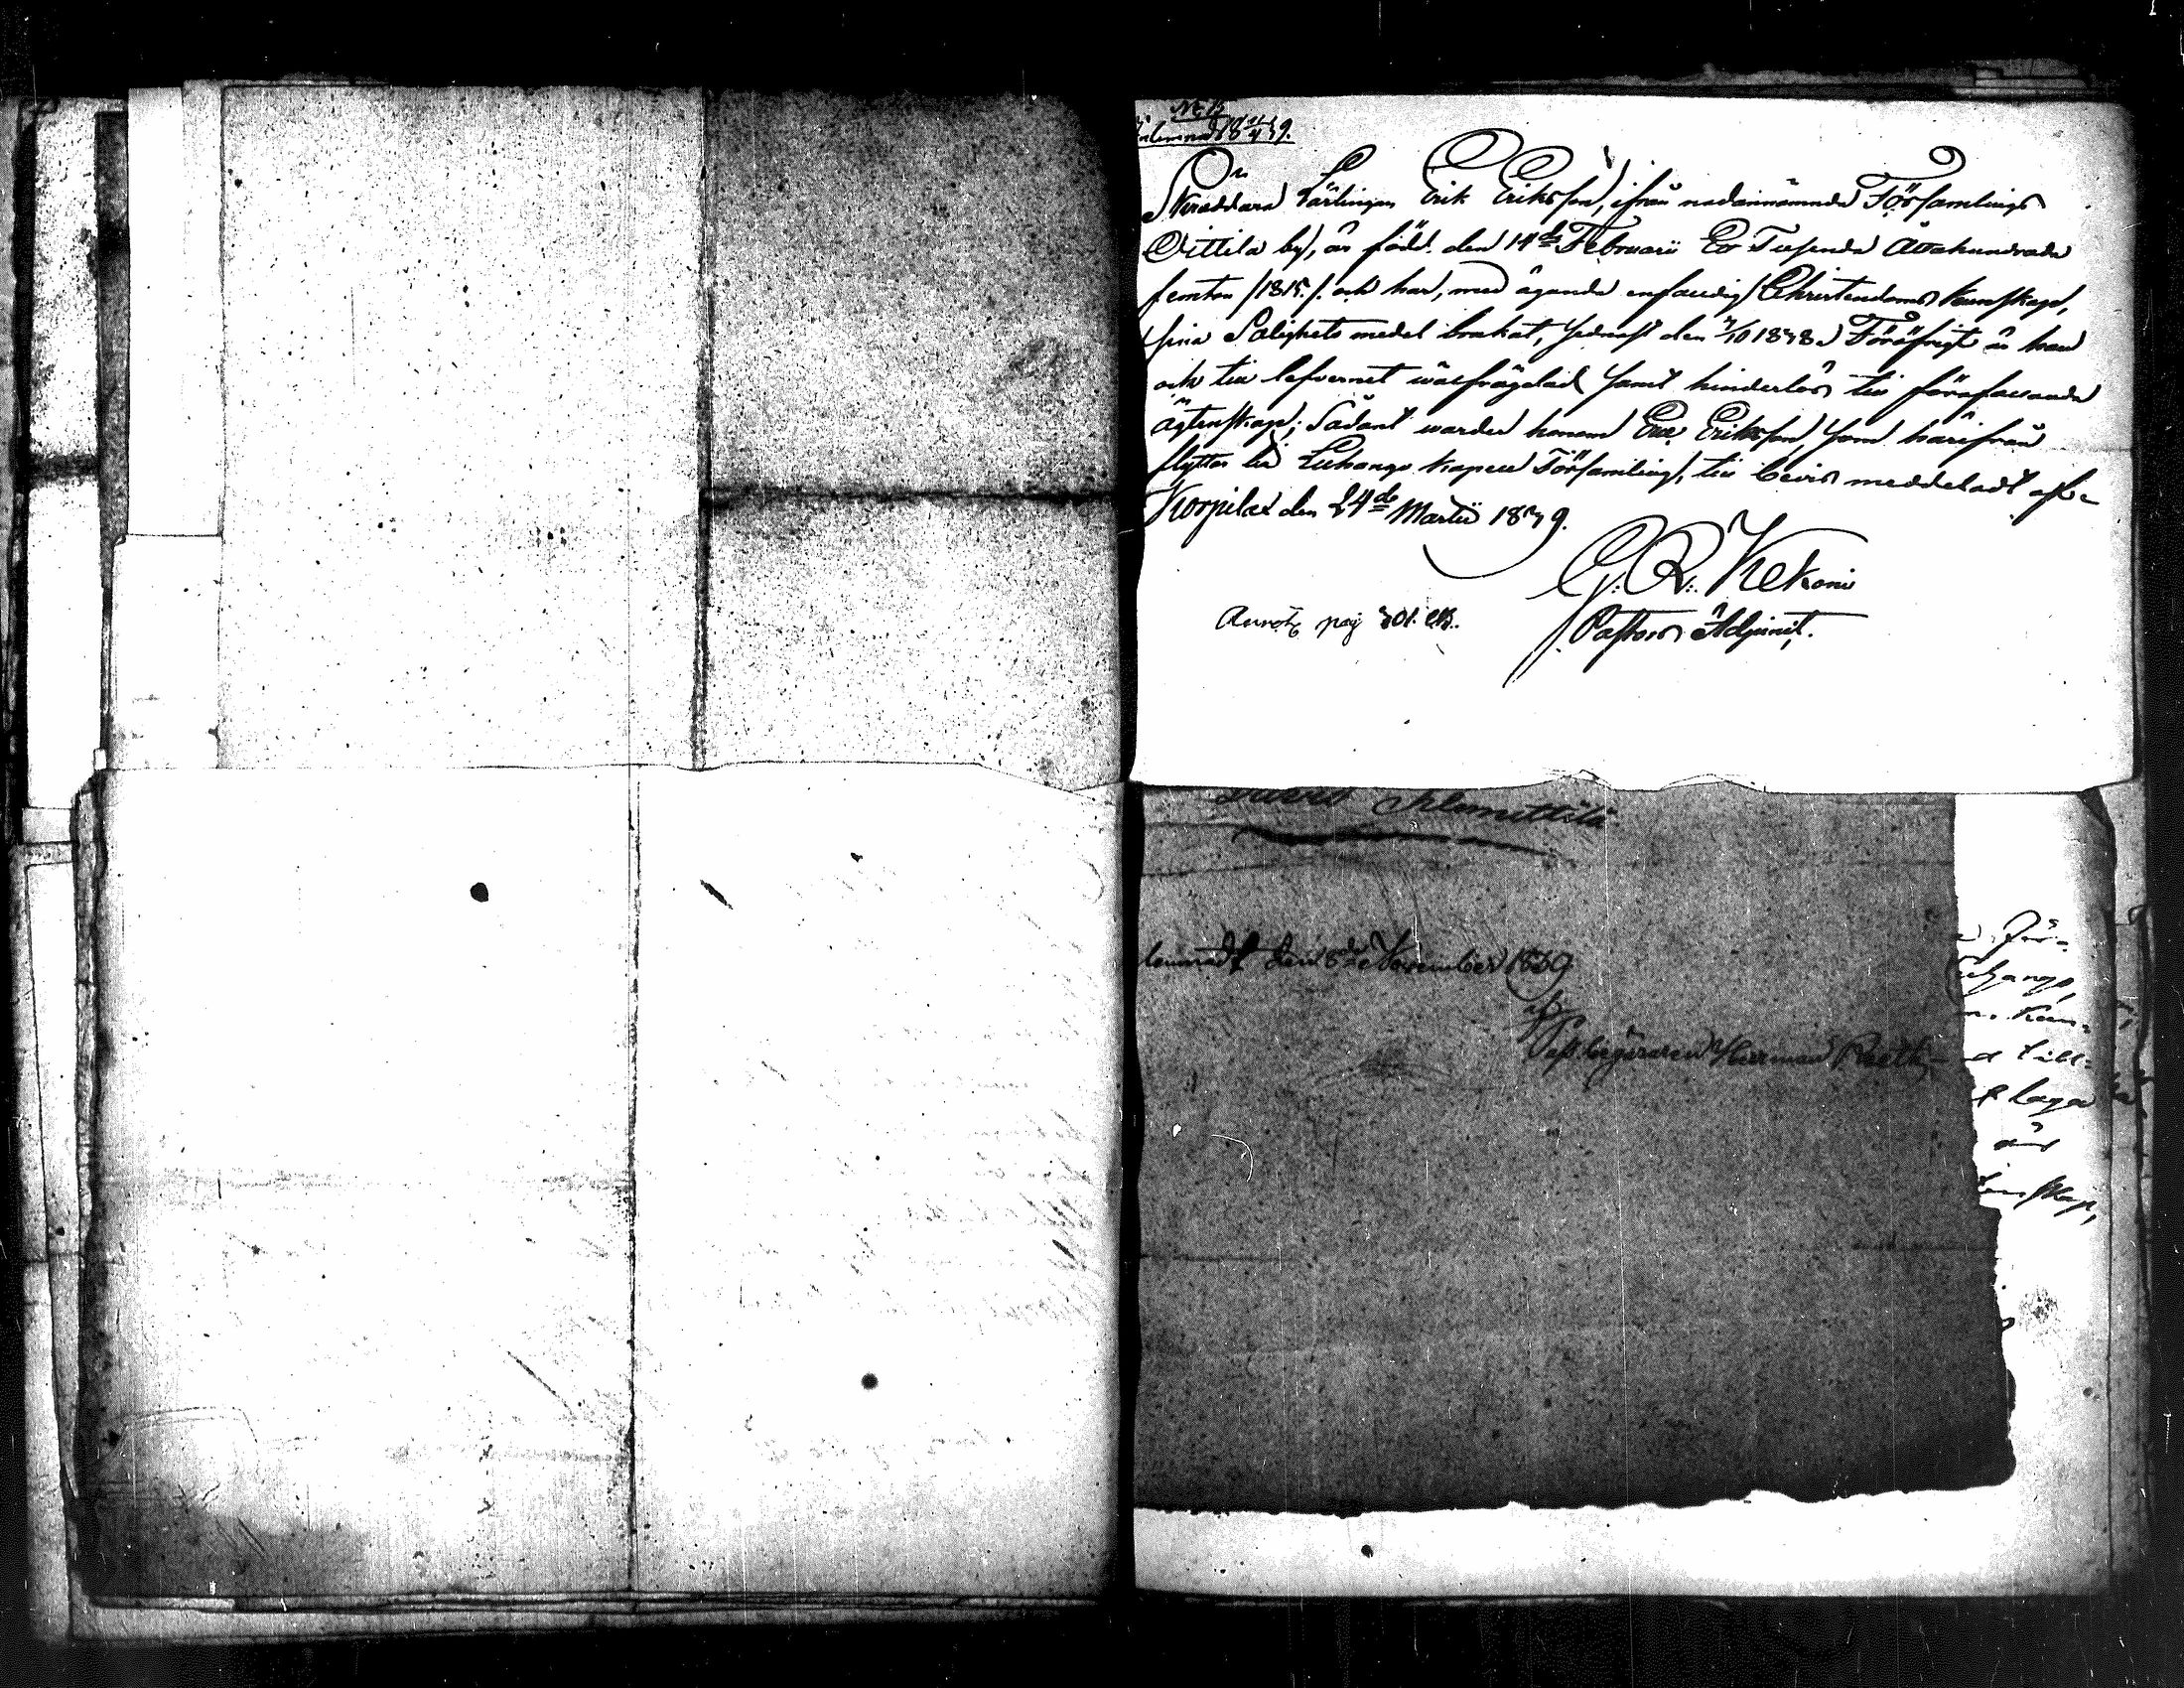 N:o 13
Inlemnad 18 21/4 39.
Skräddare Lärlingen Erik Eriksson, ifrån nedannämnde Församlings
Oittila by, är född den 14de Februarii Ett Tusende Åttahundrade
femton /1815./. och har, med ägande enfaldig Christendoms Kunskap,
sina Salighets medel brukat, sednast den 7/10 1838. Föröfrigt är han
och till lefvernet wälfrägdad samt hinderlös till förefallande
ägtenskap; Sådant warder honom Eric Eriksson, som härifrån
flyttar till Luhango kapell Församling, till bevis meddeladt af
Korpilax den 24de Martii 1839.
G. R. Kekoni
Pastors Adjunct.
Annot: pag 301.
David Klemettilä
lemnadt den 8de November 1839
af
Pass begäraren Herman
För-
Luhango,
till-
laga
är